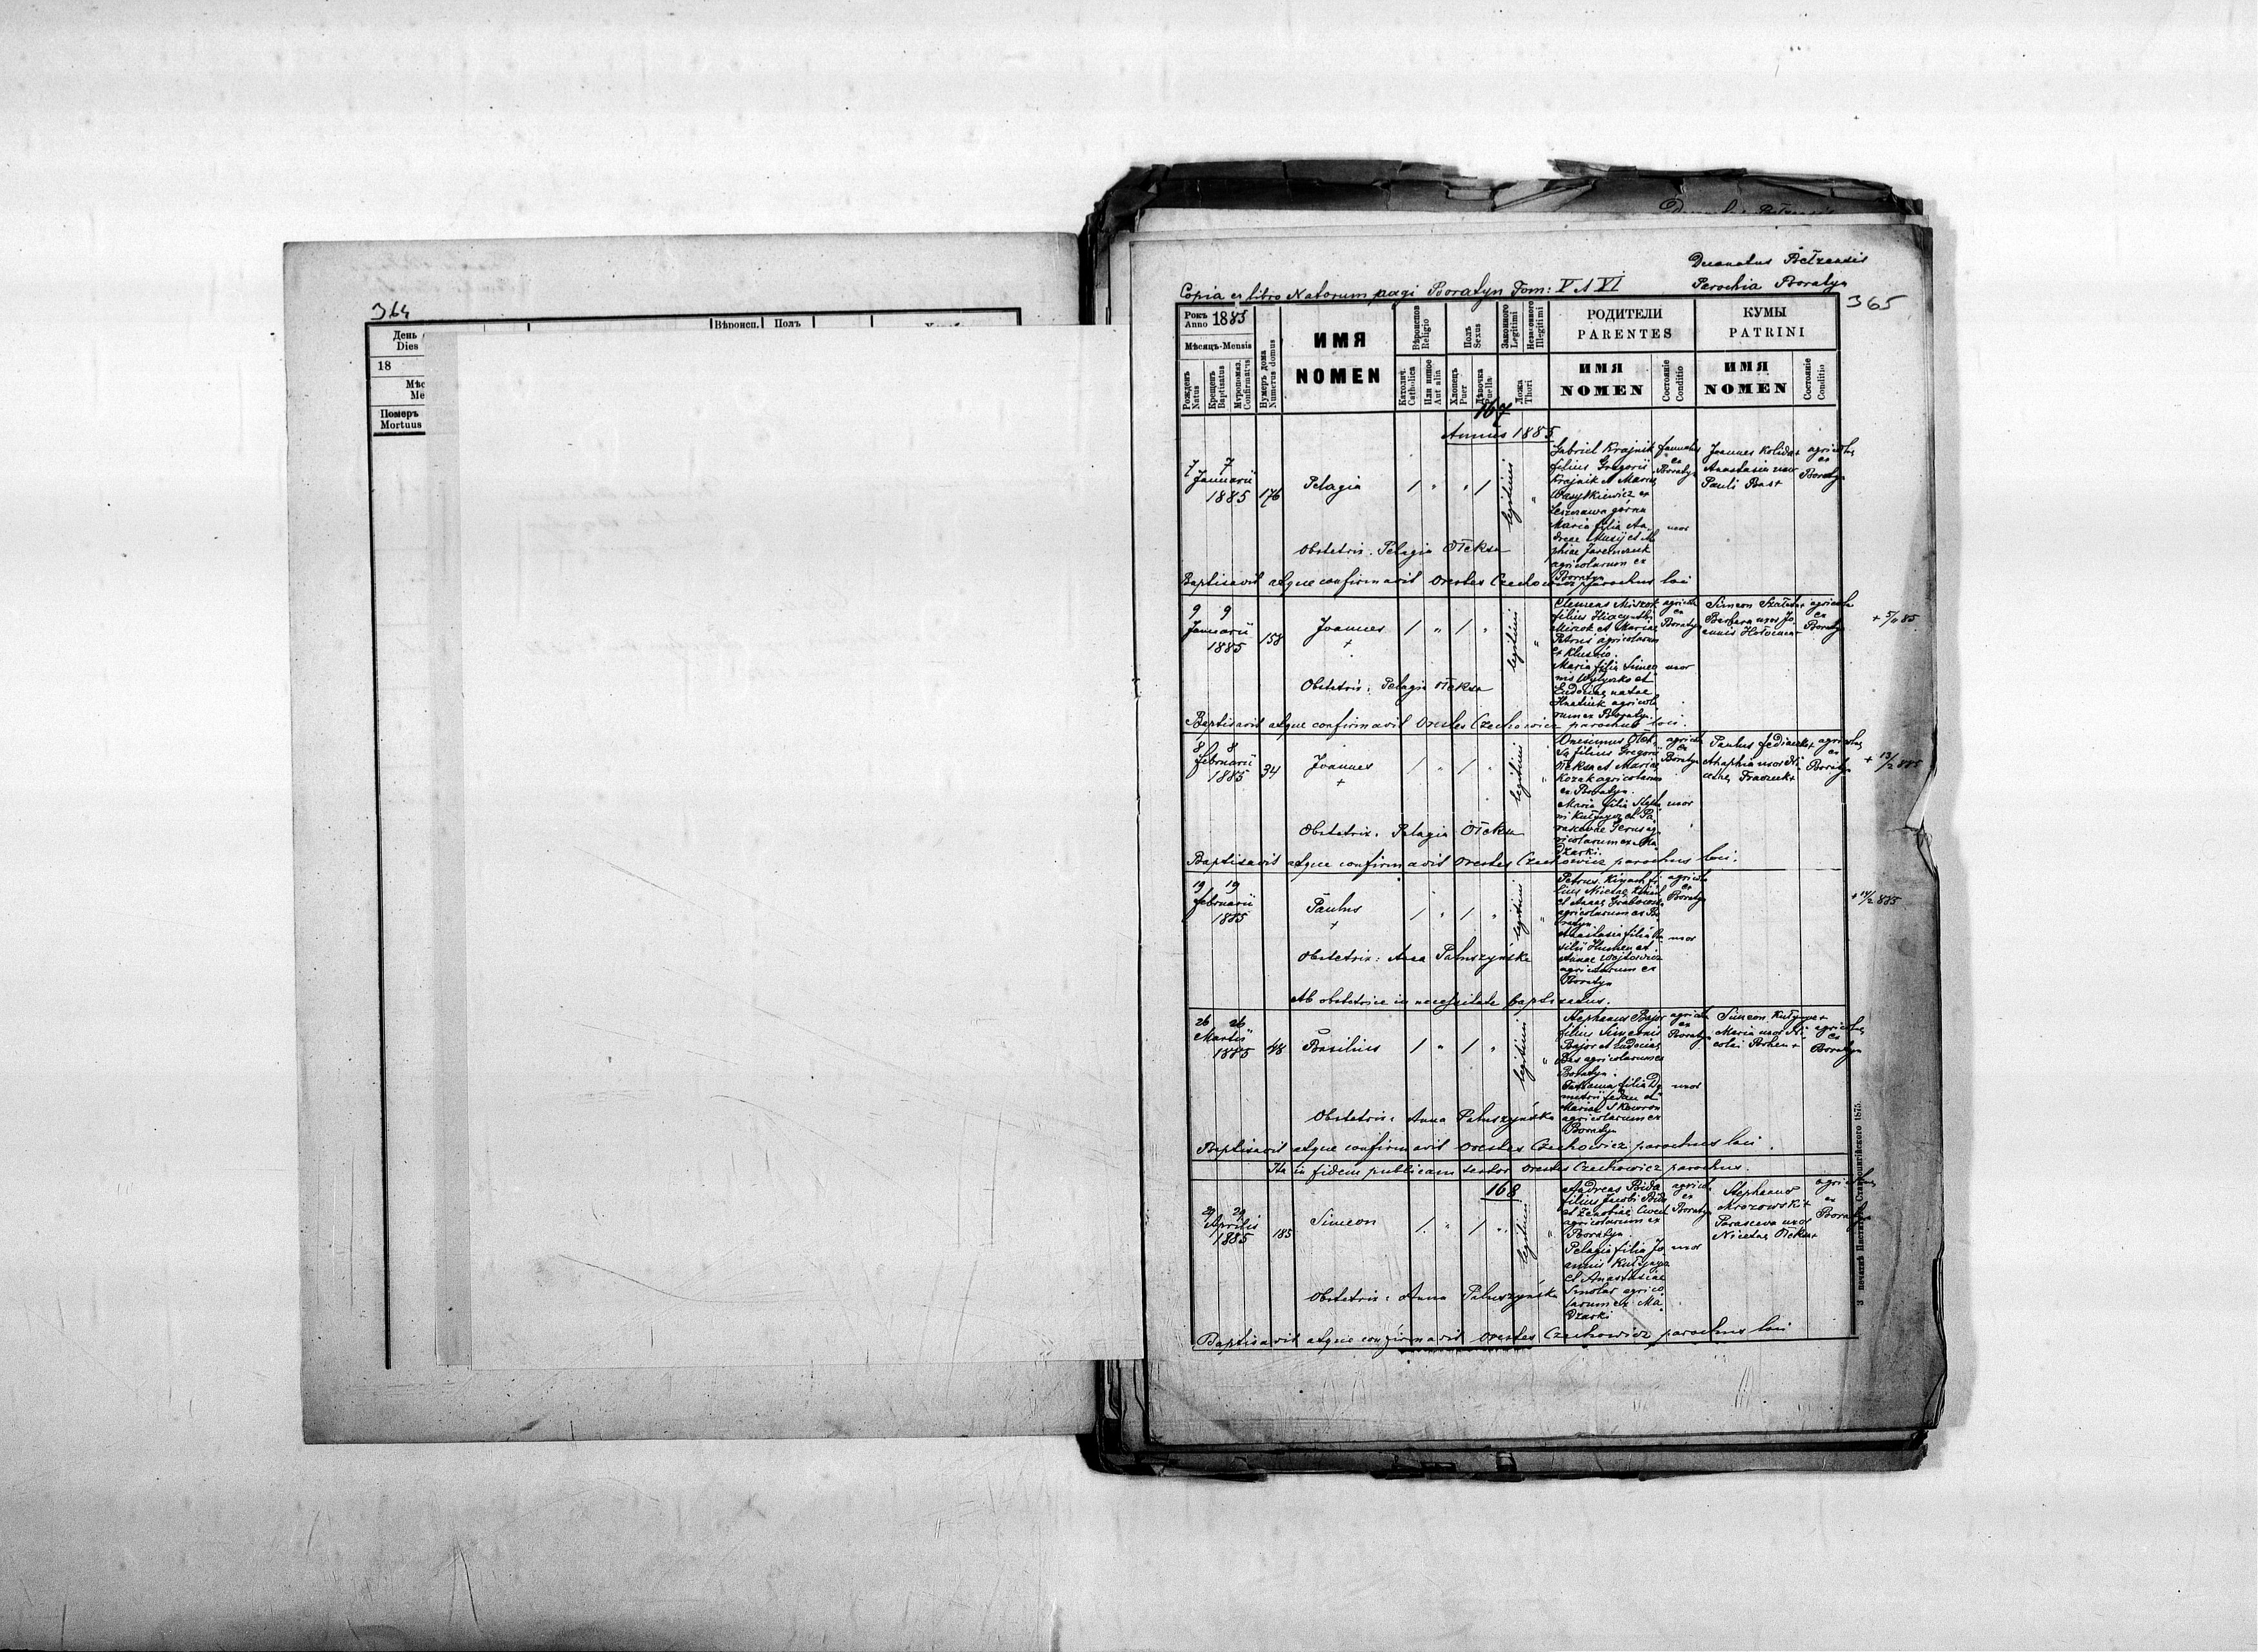 364
День
Dies
18
Померъ
Mortuus
Вѣроисп.
Полъ
Decanatus Bełzensis
Parochia Boratyn
Copia ex libro Natorum pagi Boratyn Tom: V et VI
365
Рокъ
Anno 1885
Мѣсяцъ-Mensis
Рожденъ
Natus
Крещенъ
Baptisatus
Мѵропомаз.
Confirmatus
Нумеръ дома
Numerus domus
ИМЯ
NOMEN
Вѣроисповѣд.
Religio
Католич.
Catholica
Или инное
Aut alia
Полъ
Sexus
Хлопецъ
Puer
Дѣвочка
Puella
Законного
Legitimi
Незаконного
Illegitimi
Ложа
Thori
РОДИТЕЛИ
PARENTES
ИМЯ
NOMEN
Состояніе
Conditio
КУМЫ
PATRINI
ИМЯ
NOMEN
Состояніе
Conditio
167
Annus 1885
7 7
Januarii
1885
176
Pelagia
legitimi
Gabriel Krajnik
filius Gregorii
Krajnik et Mariae
Wasylkiewicz ex
Leszczawa górna
Maria filia An
dreae
agricolarum ex
Boratyn
famulus
ex
Boratyn
uxor
Joannes
Anastasia uxor
Pauli
agricolae
ex
Boratyn
Obstetrix: Pelagia Ołeksa
Baptisavit atque confirmavit Orestes Czechowicz parochus loci
9 9
Januarii
1885
158
Joannes
+
legitimi
Clemens Miszok
filius Hiacynthi
Miszok et Mariae
Petrus agricolarum
ex Klusżo.
Maria filia Simeo
nis et
Eudociae natae
Hnatiuk agricola
rum ex Boratyn.
agricola
ex
Boratyn
uxor
Simeon
Barbara uxor Jo
annis
agricolae
ex
Boratyn
+ 5/11 85
Obstetrix: Pelagia Ołeksa
Baptisavit atque confirmavit Orestes Czechowicz parochus loci.
8 8
Februarii
1885
34
Joannes
+
legitimi
Onesimus Ołek
sa filius Gregorii
Ołeksa et Mariae
Kozak agricolarum
ex Boratyn.
Maria filia Stepha
ni Kułynycz et Pa
rascevae Serus ag
ricolarum ex Ma
dzarki.
agricola
ex
Boratyn
uxor
Paulus
Agaphia uxor Ni
cetae
agricolae
ex
Boratyn
+ 13/2 885
Obstetrix: Pelagia Ołeksa
Baptisavit atque confirmavit Orestes Czechowicz parochus loci.
19 19
Februarii
1885
Paulus
+
legitimi
Petrus fi
lius Nicetae
et Annae
agricolarum ex Bo
ratyn.
Anastasia filia Ba
silii et
Annae Wojtowicz
agricolarum ex
Boratyn
agricola
ex
Boratyn
uxor
+ 19/2 885
Obstetrix: Anna Patuszyńska
Ab obstetrice in necessitate baptisatus.
26 26
Martii
1885
48
Basilius
legitimi
Stephanus Bajor
filius Simeonis
Bajor et Eudociae
Bas agricolarum ex
Boratyn.
Tatianna filia De
metrii Fedan et
Mariae Skowron
agricolarum ex
Boratyn
agricola
ex
Boratyn
uxor
Simeon Kułynycz +
Maria uxor Ni
colai
agricolae
ex
Boratyn
Obstetrix: Anna Patuszyńska
Baptisavit atque confirmavit Orestes Czechowicz parochus loci.
Ita in fidem publicam testor Orestes Czechowicz parochus.
168
29 29
Aprilis
1885
185
Simeon
legitimi
Andreas Bida
filius Jacobi Bida
et Zenobiae
agricolarum ex
Boratyn.
Pelagia filia Jo
annis Kułynycz
et Anastasiae
Smolar agrico
larum ex Ma
dzarki
agricola
ex
Boratyn
uxor
Stephanus
Mrozowski +
Parasceva uxor
Nicetae Ołeksa +
agricolae
ex
Boratyn
Obstetrix: Anna Patuszyńska
Baptisavit atque confirmavit Orestes Czechowicz parochus loci